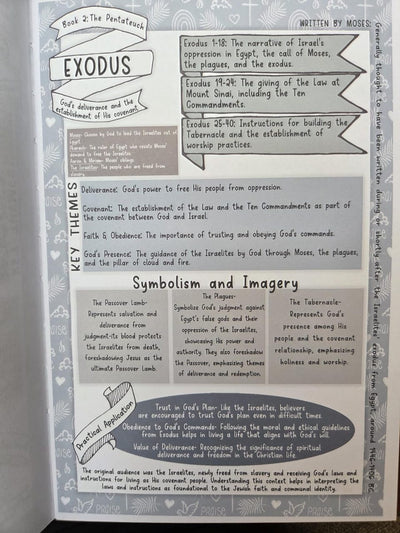 Book 2: The Pentateuch
EXODUS
God's deliverance and the
establishment of His covenant.
WRITTEN BY MOSES:
Generally thought to have been written during or shortly after the Israelites' exodus from Egypt, around 1446-1406 BC.
Exodus 1-18: The narrative of Israel's
oppression in Egypt, the call of Moses,
the plagues, and the exodus.
Exodus 19-24: The giving of the Law at
Mount Sinai, including the Ten
Commandments.
Exodus 25-40: Instructions for building the
Tabernacle and the establishment of
worship practices.
Moses: Chosen by God to lead the Israelites out of
Egypt.
Pharaoh: The ruler of Egypt who resists Moses'
demand to free the Israelites.
Aaron & Miriam: Moses' siblings.
The Israelites: The people who are freed from
slavery.
KEY THEMES
Deliverance: God's power to free His people from oppression.
Covenant: The establishment of the Law and the Ten Commandments as part
of the covenant between God and Israel.
Faith & Obedience: The importance of trusting and obeying God's commands.
God's Presence: The guidance of the Israelites by God through Moses, the plagues,
and the pillar of cloud and fire.
Symbolism and Imagery
The Passover Lamb-
Represents salvation and
deliverance from
judgment-its blood protects
the Israelites from death,
foreshadowing Jesus as the
ultimate Passover Lamb.
The Plagues-
Symbolize God's judgment against
Egypt's false gods and their
oppression of the Israelites,
showcasing His power and
authority. They also foreshadow
the Passover, emphasizing themes
of deliverance and redemption.
The Tabernacle-
Represents God's
presence among His
people and the covenant
relationship, emphasizing
holiness and worship.
Practical Application
Trust in God's Plan- Like the Israelites, believers
are encouraged to trust God's plan even in difficult times.
Obedience to God's Commands- Following the moral and ethical guidelines
from Exodus helps in living a life that aligns with God's will.
Value of Deliverance- Recognizing the significance of spiritual
deliverance and freedom in the Christian life.
The original audience was the Israelites, newly freed from slavery and receiving God's laws and
instructions for living as His covenant people. Understanding this context helps in interpreting the
laws and instructions as foundational to the Jewish faith and communal identity.
PRAISE
PRAISE